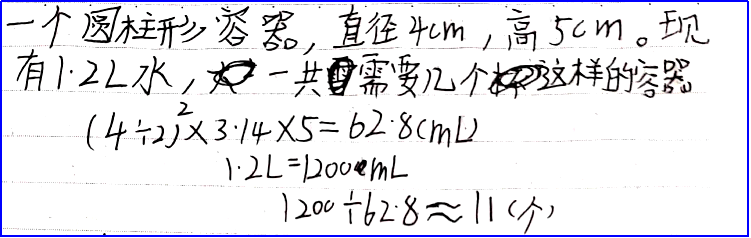 一个圆柱形容器，直径4cm，高5cm。现
有1.2L水，一共需要几个这样的容器
(4÷2)²×3.14×5=62.8(mL)
1.2L=1200mL
1200÷62.8≈11(个)